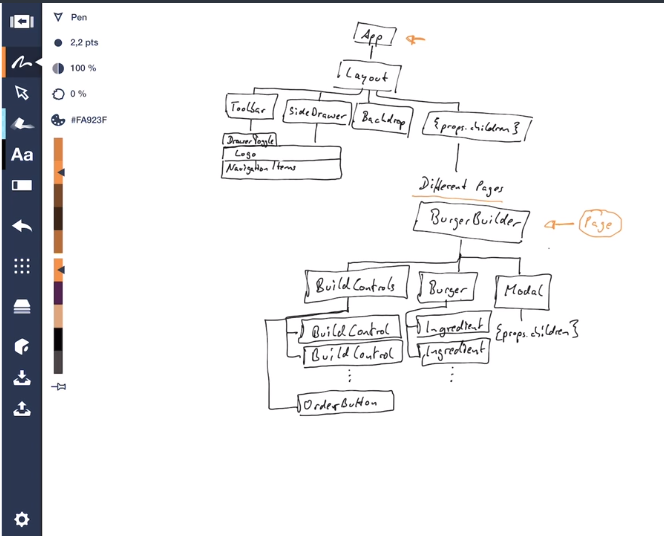 Pen
2,2 pts
100 %
0 %
#FA923F
Aa
App
Layout
Toolbar
SideDrawer
Backdrop
{props.children}
DrawerToggle
Logo
Navigation Items
Different Pages
BurgerBuilder
Page
BuildControls
Burger
Modal
BuildControl
Ingredient
{props.children}
BuildControl
Ingredient
OrderButton